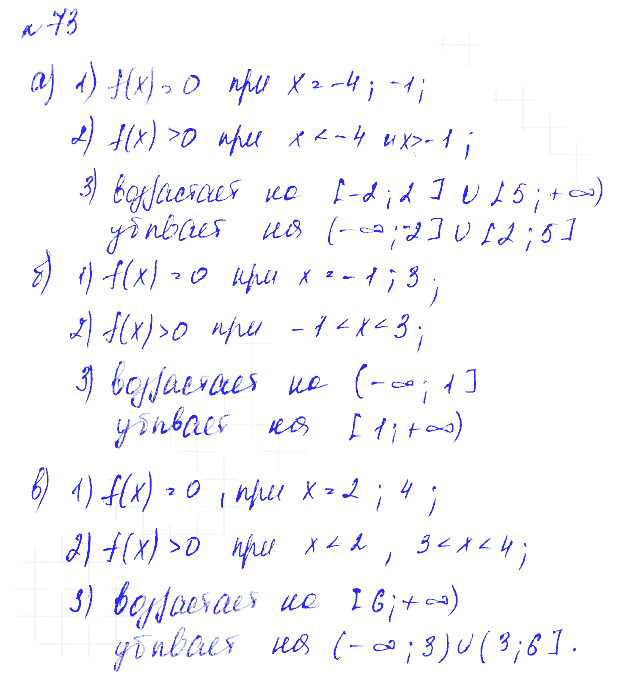 №73
а) 1) f(x) = 0 при x = -4; -1;
2) f(x) > 0 при x < -4 и x > -1;
3) возрастает на [-2; 2] ∪ [5; +∞)
убывает на (-∞; -2] ∪ [2; 5]
б) 1) f(x) = 0 при x = -1; 3;
2) f(x) > 0 при -1 < x < 3;
3) возрастает на (-∞; 1]
убывает на [1; +∞)
в) 1) f(x) = 0, при x = 2; 4;
2) f(x) > 0 при x < 2, 3 < x < 4;
3) возрастает на [6; +∞)
убывает на (-∞; 3) ∪ (3; 6].